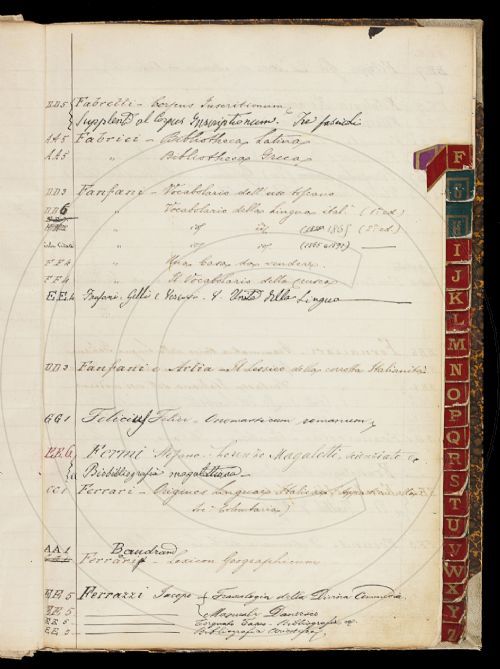 DD5 Fabretti - Corpus Inscritionum
Supplemt al Corpus Inscriptionum. Tre fascicoli
AA5 Fabrici - Bibliotheca Latina
AA5 " Bibliotheca Graeca
DD3 Fanfani - Vocabolario dell'uso toscano
DD6 " Vocabolario della lingua ital. (1a ed)
" id id 1865 (2a ed)
" id id
FF4 " Una Casa da vendere
FF4 " Il Vocabolario della crusca
EE4 Fanfani, Gelli e L'Unità della Lingua
DD3 Fanfani e Arlia - Il Lessico della corrotta Italianità
GG1 Felicius Felice - Onomasticum romanum
EE6 Fermi Stefano - Lorenzo Magalotti, scienziato e
Bibibliografia magalottiana
CC1 Ferrari - Origines Linguae Italicae
AA1 Baudrand
Ferrari - Lexicon Geographicum
EE5 Ferrazzi Jacopo Enciclopedia della Divina Commedia
EE5 Manuale Dantesco
EE5 Torquato Tasso - Bibliografia
EE5 Bibliografia
F
G
H
I
J
K
L
M
N
O
P
Q
R
S
T
U
V
W
X
Y
Z